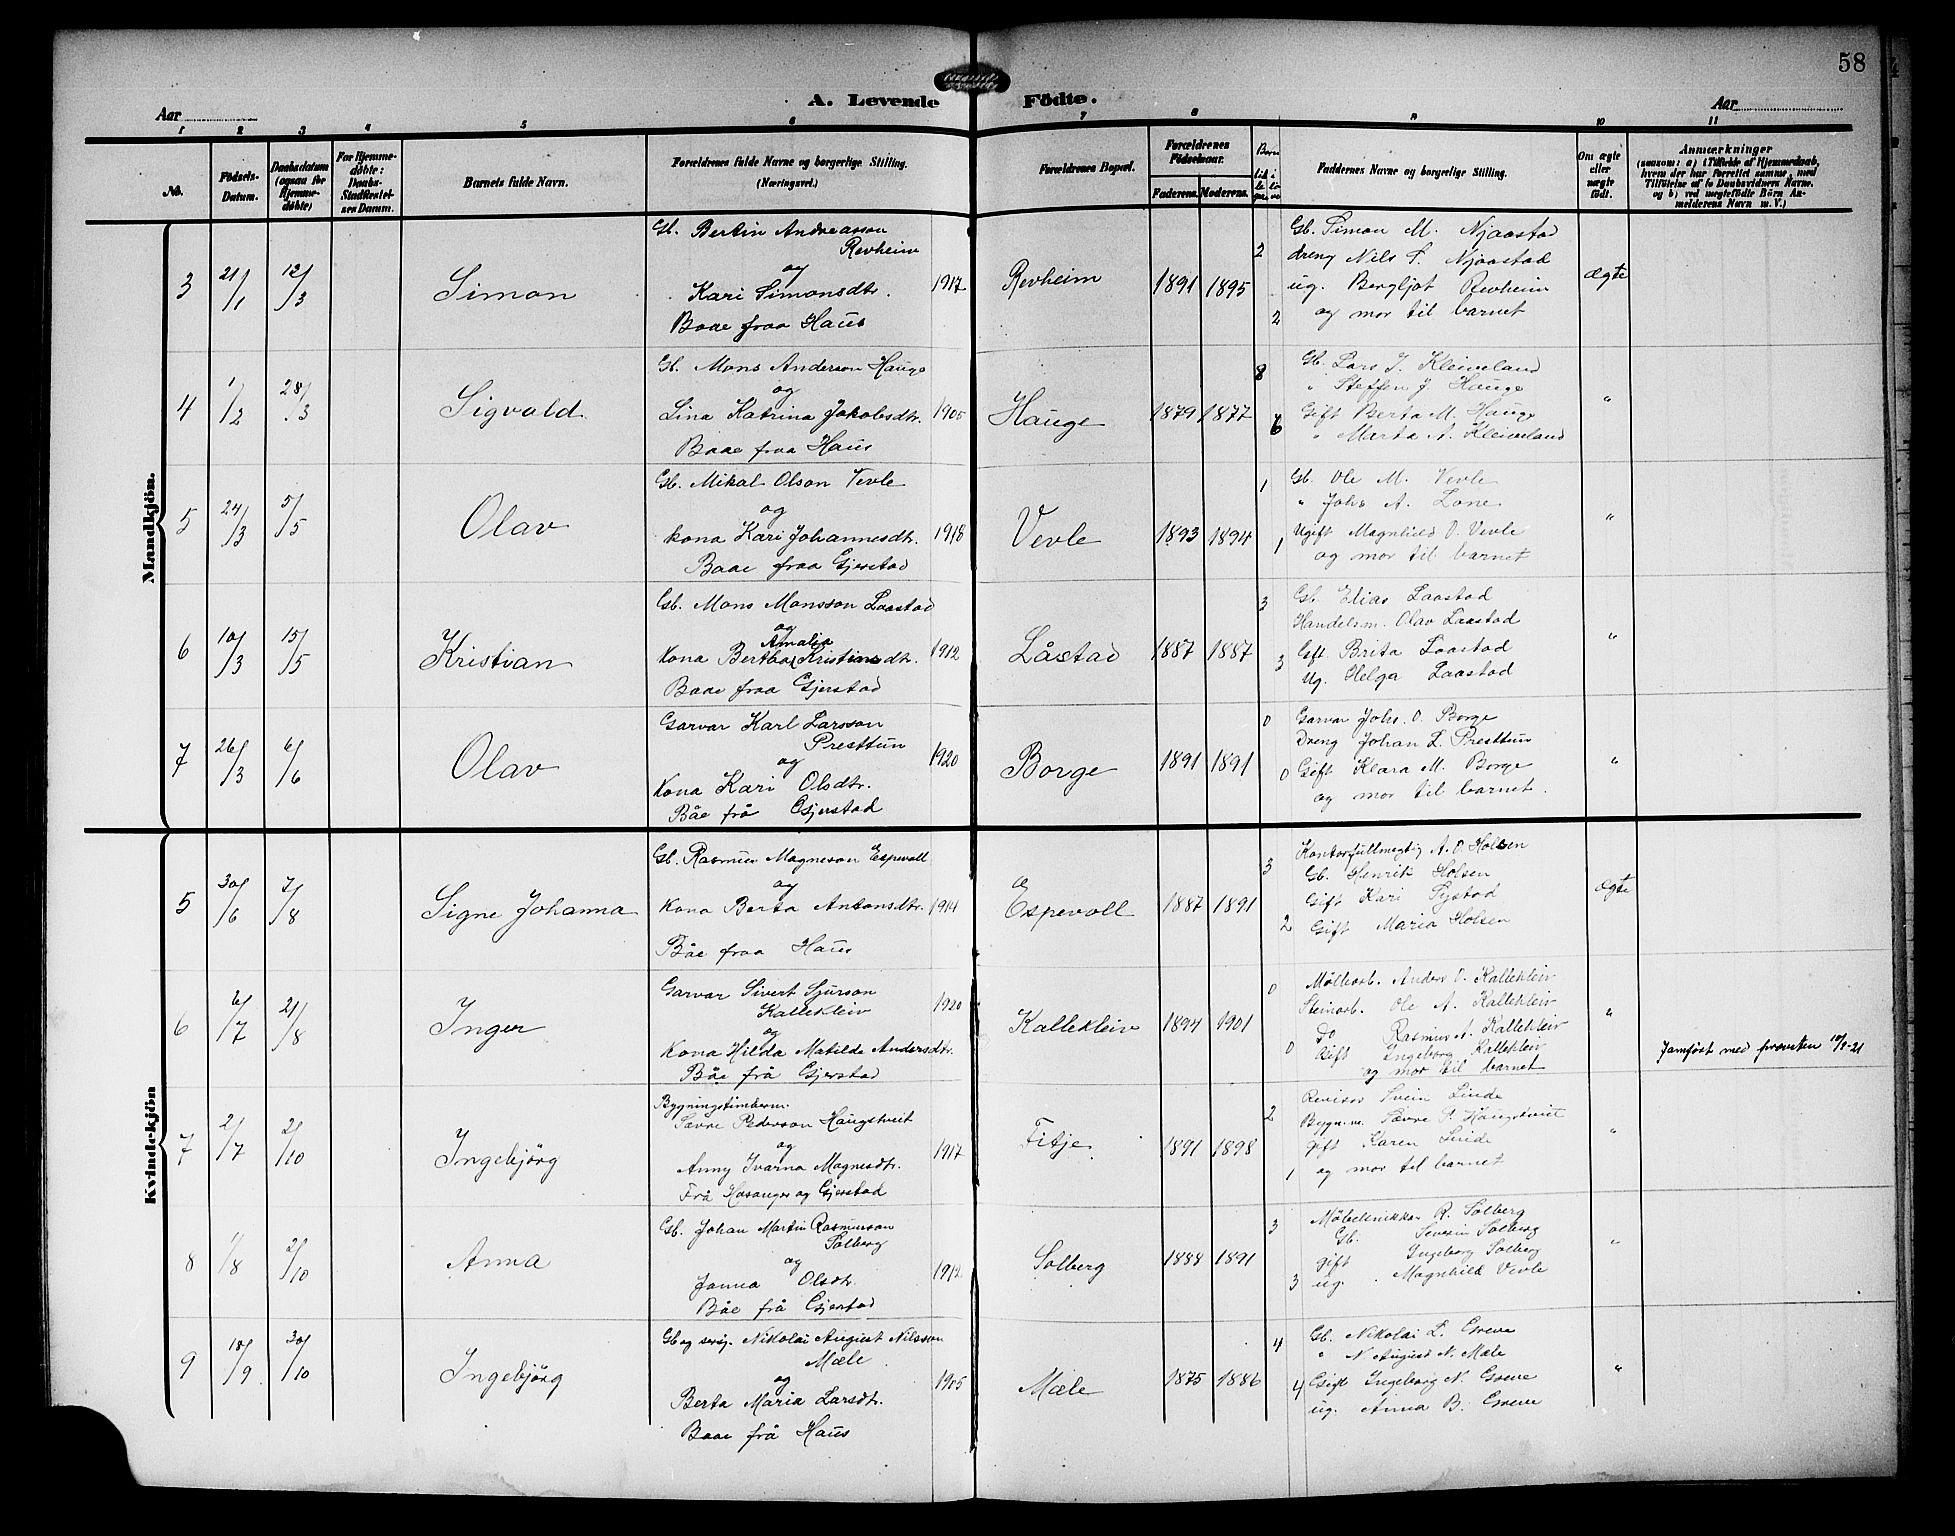 58
A. Levende Födte.
Aar
Aar
1 2 3 4 5 6 7 8 9 10 11
No.
Födsels-Datum.
Daabsdatum (ogsaa for Hjemme-döbte)
For Hjemme-döbte: Daabs-Stadfæstel-sens Datum.
Barnets fulde Navn.
Forældrenes fulde Navne og borgerlige Stilling.
(Næringsvei.)
Forældrenes Bopæl.
Forældrenes Födselsaar.
Faderens. Moderens.
Faddernes Navne og borgerlige Stilling.
Om ægte eller uægte födt.
Anmærkninger
(saasom: a) i Tilfælde af Hjemmedaab,
hvem der har forrettet samme, med
Tilföielse af to Daabsvidners Navne,
og b) ved uegtefödte Börn An-
melderens Navn m. V.)
Mandkjön.
3 21/1 12/3 Simon
Gb. Bertin Andreasson
Revheim
og
Kari Simonsdtr. 1917
Baae fraa Haus
Revheim 1891 1895 2 2
Gb. Simon M. Njaastad
dreng Nils S. Njaastad
ug. Bergljot Revheim
og mor til barnet
ægte
4 1/2 28/3 Sigvald
Gb. Mons Anderson Hauge
og
Lina Katrina Jakobsdtr. 1905
Baae fraa Haus
Hauge 1879 1877 8 6
Gb. Lars J. Kleiveland
" Steffen J. Hauge
Gift Berta M. Hauge
" Marta A. Kleiveland
"
5 24/3 5/5 Olav
Gb. Mikal Olson Vevle
og
kona Kari Johannesdtr. 1918
Baae fraa Gjerstad
Vevle 1893 1894 1 1
Gb. Ole M. Vevle
" Johs A. Lone
Ugift Magnhild O. Vevle
og mor til barnet
"
6 10/3 15/5 Kristian
Gb. Mons Monsson Laastad
og
Amalia
Kona Bertha Kristiansdtr. 1912
Baae fraa Gjerstad
Låstad 1887 1887 3 3
Gb. Elias Laastad
Handelsm. Olav Laastad
Gift Brita Laastad
Ug. Helga Laastad
"
7 26/3 6/6 Olav
Garvar Karl Larsson
Presttun
og 1920
Kona Kari Olsdtr.
Båe frå Gjerstad
Borge 1891 1891 0 0
Garvar Johs. O. Borge
Dreng Johan L. Presttun
Gift Klara M. Borge
og mor til barnet.
"
Kvindekjön
5 30/6 7/8 Signe Johanna
Gb. Rasmus Magneson Espevoll
og
Kona Berta Antonsdtr. 1914
Båe fraa Haus
Espevoll 1887 1891 3 2
Kontorfullmegtig A. O. Holsen
Gb. Henrik Holsen
Gift Kari
Gift Maria Holsen
ægte
6 6/7 21/8 Inger
Garvar Sivert Sjurson
Kallekleiv 1920
og
Kona Hilda Matilde Andersdtr.
Båe frå Gjerstad
Kallekleiv 1894 1901 0 0
Mølleorb. Anders O. Kallekleiv
Steinarb. Ole A. Kallekleiv
Do Rasmus A. Kallekleiv
Gift Ingeborg Kallekleiv
og mor til barnet
"
Jamført med prosten 10/9-21
7 2/7 2/10 Ingebjörg
Bygningstimberm.
Sævre Pederson Haugstveit
og
Anny Ivarna Magnesdtr. 1917
Frå Hosanger og Gjerstad
Titje 1891 1898 2 1
Revisor Svein Linde
Bygn.m. Sævre P. Haugstveit
gift Karen Linde
og mor til barnet
"
8 1/8 2/10 Anna
Gb. Johan Martin Rasmusson
Solberg
og
Janna Olsdtr. 1912
Båe frå Gjerstad
Solberg 1888 1891 3 3
Møbelsnikkar R. Solberg
Gb. Severin Solberg
gift Ingeborg Solberg
ug. Magnhild Vevle
"
9 18/9 30/10 Ingebjörg
Gb og sersj. Nikolai August Nilsson
Mæle
og 1905
Berta Maria Larsdtr.
Baae frå Haus
Mæle 1875 1886 4 4
Gb. Nikolai L. Greve
" N August N. Mæle
Gift Ingeborg N. Greve
ug. Anna B. Greve
"